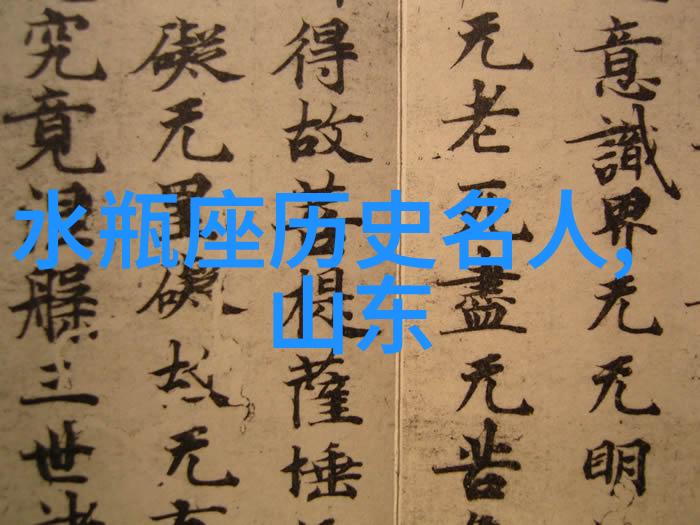 水瓶座历史名人,
山东
意識界无无明
无老死盡无苦
得故菩提薩埵
礙无罣礙故无
究竟涅槃三世諸